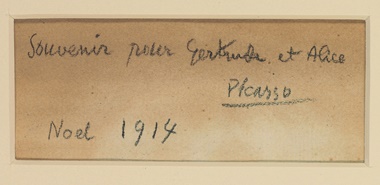 Souvenir pour Gertrude et Alice
Picasso
Noel 1914